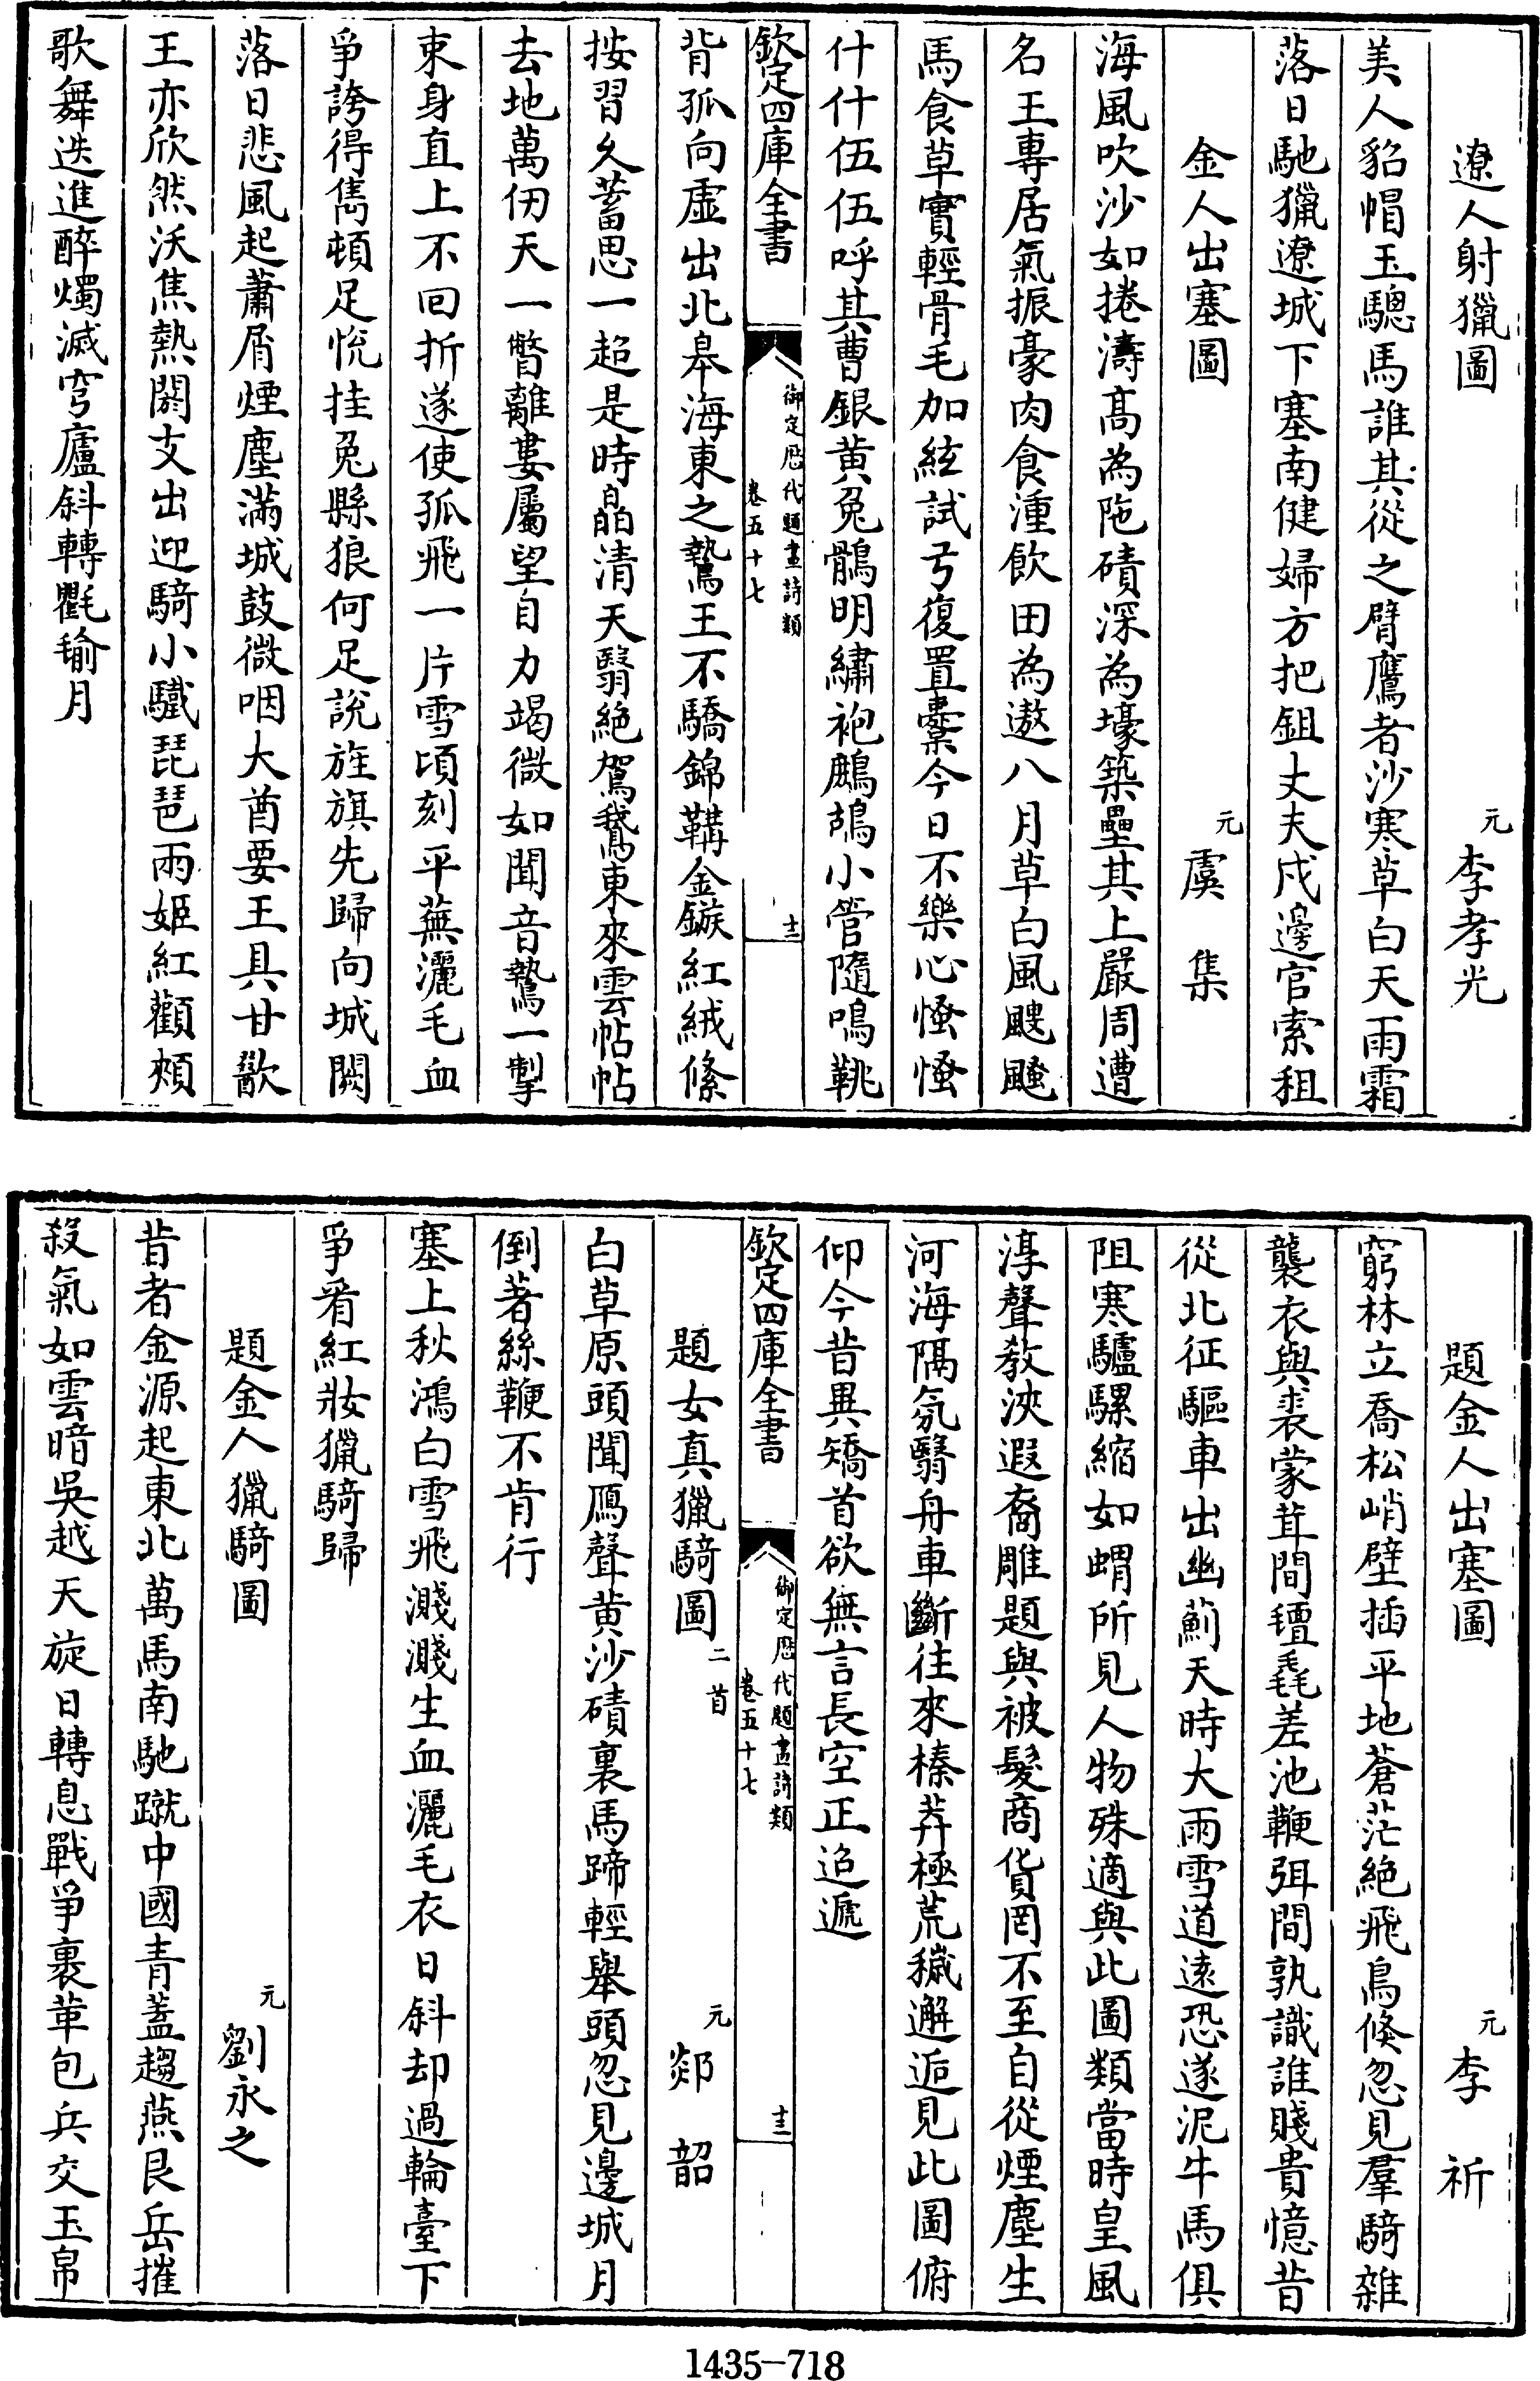 遼人射獵圖 元 李孝光
美人貂帽玉驄馬誰其從之臂鷹者沙寒草白天雨霜
落日馳獵遼城下塞南健婦方把鉏丈夫戍邊官索租
金人出塞圖 元 虞 集
海風吹沙如捲濤高為陁磧深為壕築壘其上嚴周遭
名王專居氣振豪肉食湩飲田為遨八月草白風颼飀
馬食草實輕骨毛加絃試弓復置櫜今日不樂心慅慅
什什伍伍呼其曹銀黄兔鶻明繡袍鷓鴣小管隨鳴鞉
欽定四庫全書
御定歷代題畫詩類
卷五十七
十二
背孤向虛出北皋海東之鷙王不驕錦韝金鏇紅絨絛
按習久蓄思一超是時晶清天翳絶駕鵝東來雲帖帖
去地萬仞天一瞥離婁屬望自力竭微如聞音鷙一掣
束身直上不回折遂使孤飛一片雪頃刻平蕪灑毛血
爭誇得雋頓足悅挂兔縣狼何足說旌旗先歸向城闕
落日悲風起蕭屑煙塵滿城鼓微咽大酋要王具甘歠
王亦欣然沃焦熱閼支出迎騎小驖琵琶兩姬紅顴頰
歌舞迭進醉燭滅穹廬斜轉氍毹月
題金人出塞圖 元 李 祈
窮林立喬松峭壁插平地蒼茫絶飛鳥倐忽見羣騎雜
襲衣與裘蒙茸間氊毳差池鞭弭間孰識誰賤貴憶昔
從北征驅車出幽薊天時大雨雪道遠恐遂泥牛馬俱
阻寒驢騾縮如蝟所見人物殊適與此圖類當時皇風
淳聲教浹遐裔雕題與被髮商貨罔不至自從煙塵生
河海隅氛翳舟車斷往來榛莽極荒穢邂逅見此圖俯
仰今昔異矯首欲無言長空正迢遞
欽定四庫全書
御定歷代題畫詩類
卷五十七
十三
題女真獵騎圖 二首 元 郯 韶
白草原頭聞鴈聲黄沙磧裏馬蹄輕舉頭忽見邊城月
倒著絲鞭不肯行
塞上秋鴻白雪飛濺濺生血灑毛衣日斜却過輪臺下
爭看紅妝獵騎歸
題金人獵騎圖 元 劉永之
昔者金源起東北萬馬南馳蹴中國青蓋趨燕艮岳摧
殺氣如雲暗吳越天旋日轉息戰爭裹革包兵交玉帛
1435-718